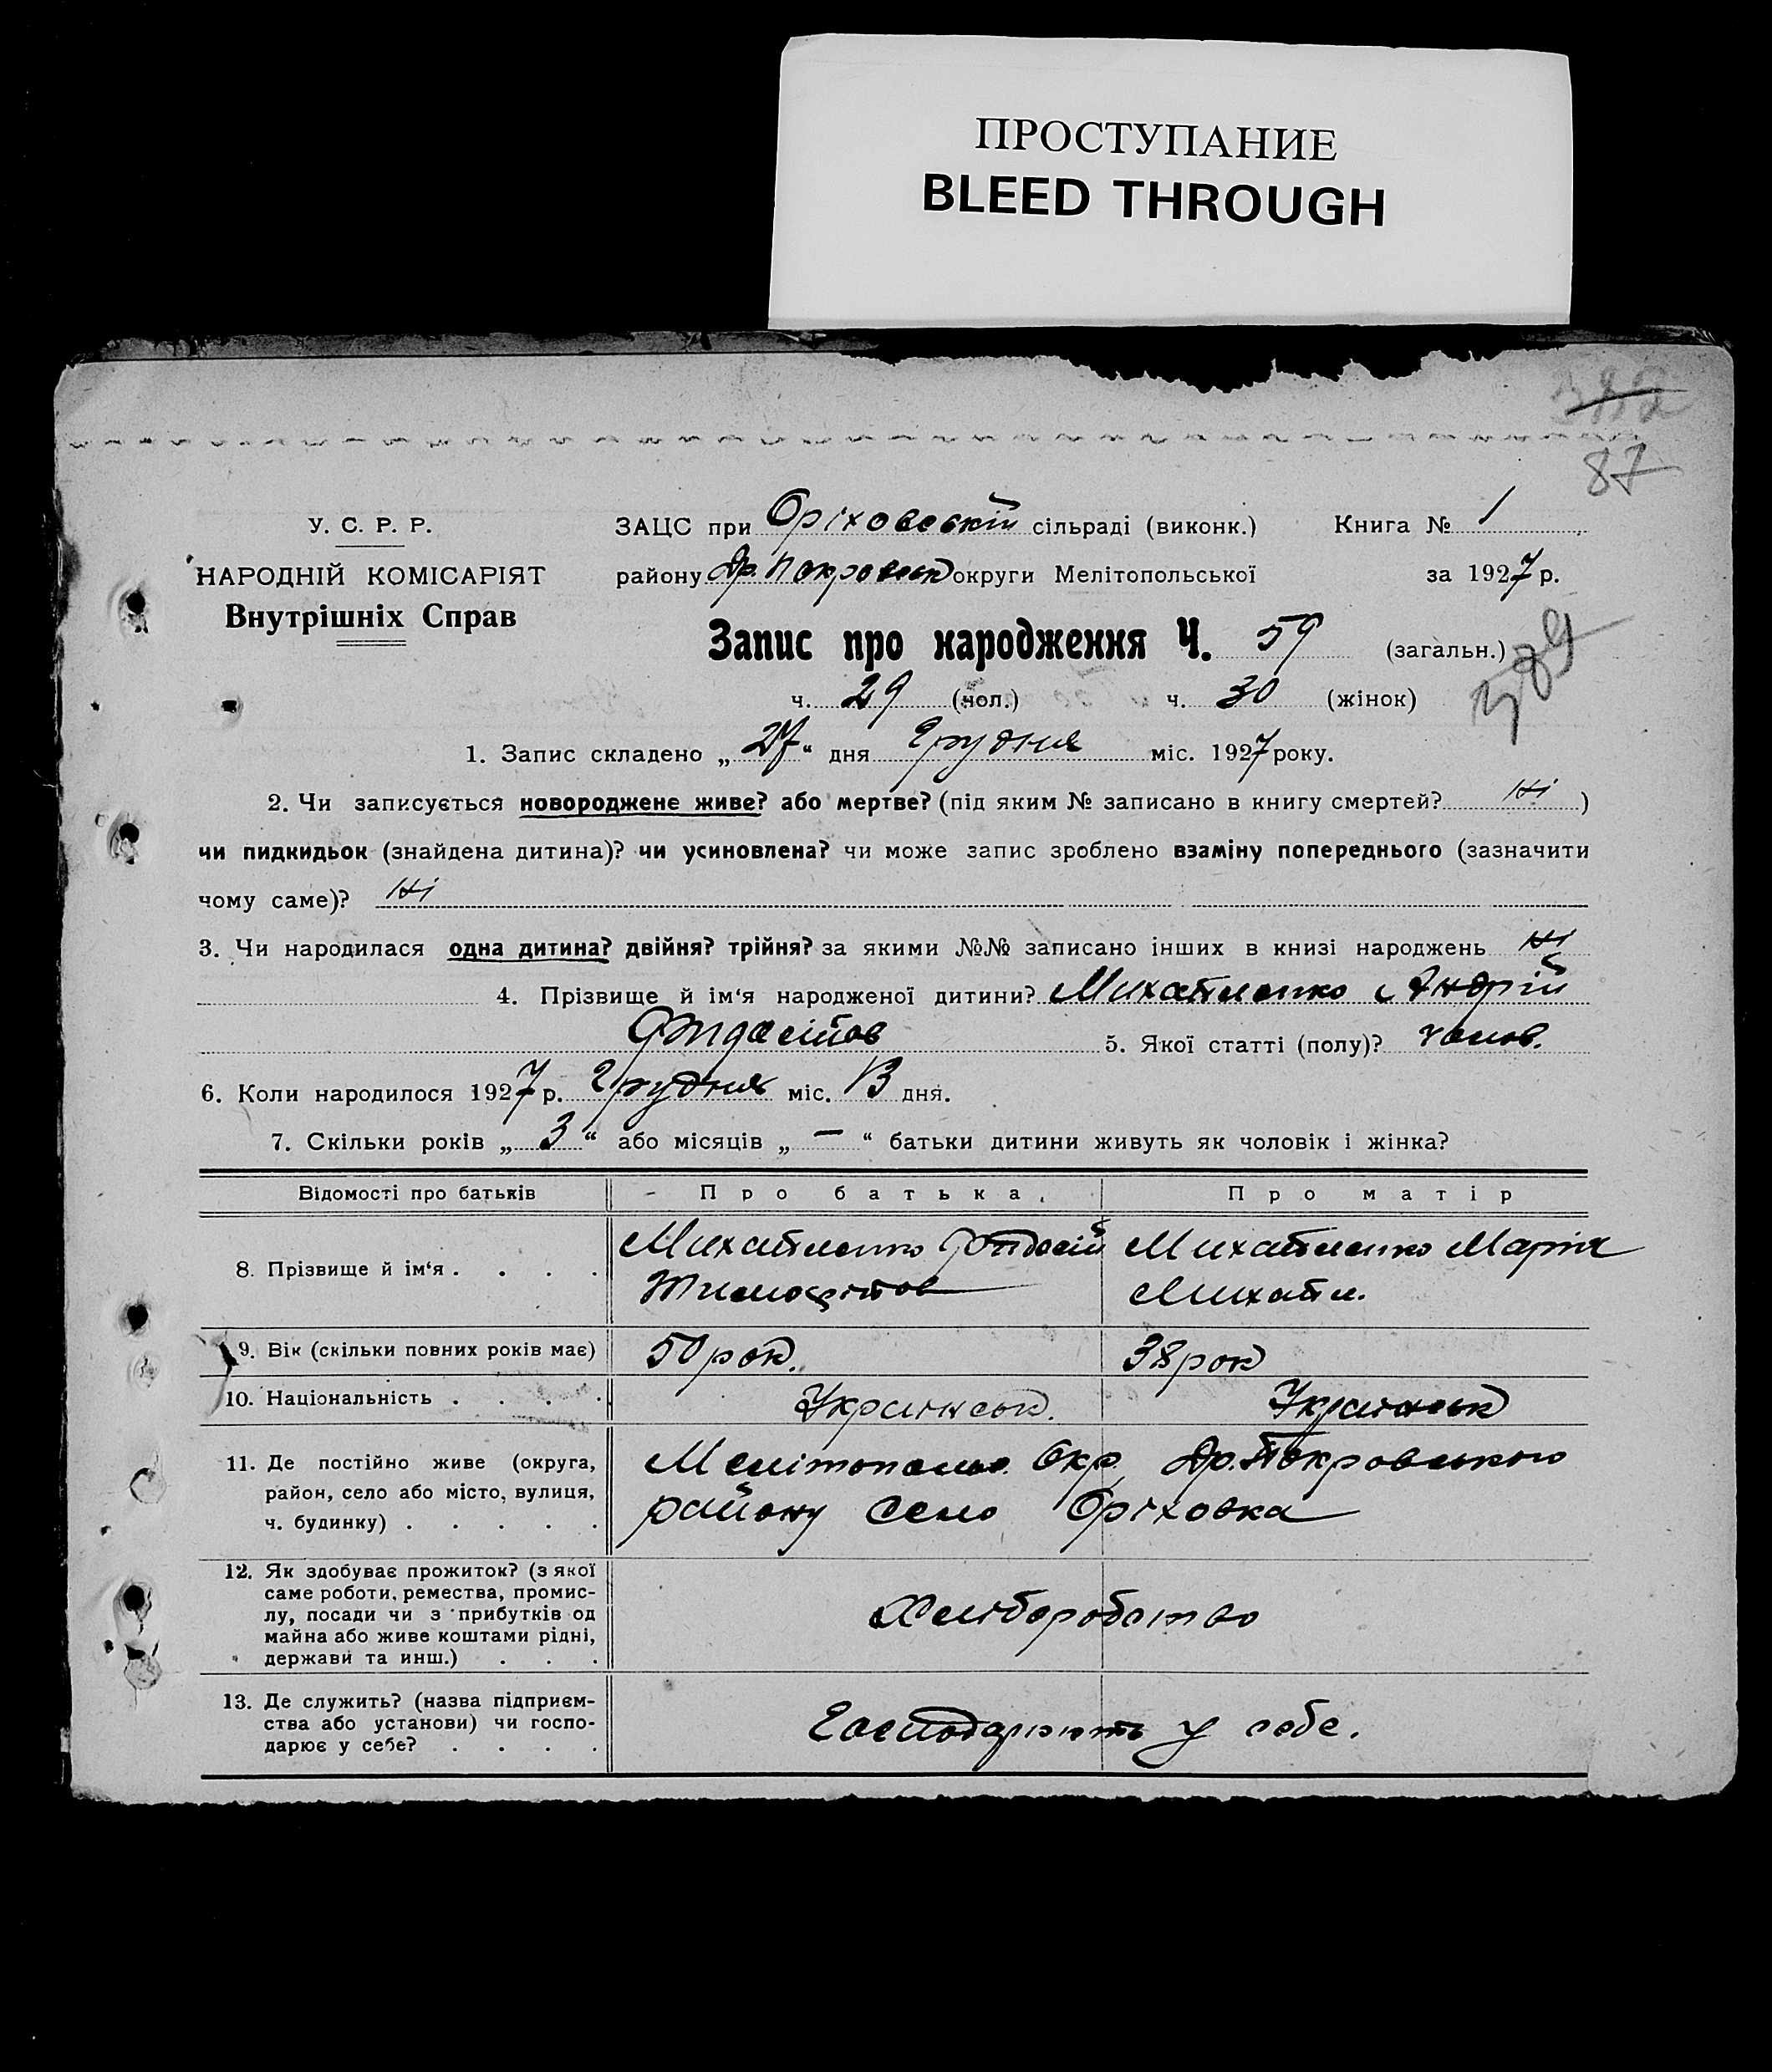 ПРОСТУПАНИЕ
BLEED THROUGH
87
У. С. Р. Р.
НАРОДНІЙ КОМІСАРІЯТ
Внутрішніх Справ
ЗАЦС при Оріховській сільраді (виконк.) Книга № 1
району Др. Покровськ округи Мелітопольської за 1927 р.
Запис про народження Ч. 59 (загальн.)
ч. 29 (чол.) ч. 30 (жінок)
1. Запис складено „ 27 “ дня Грудня міс. 1927 року.
2. Чи записується новороджене живе? або мертве? (під яким № записано в книгу смертей? Ні )
чи пидкидьок (знайдена дитина)? чи усиновлена? чи може запис зроблено взаміну попереднього (зазначити
чому саме)? Ні
3. Чи народилася одна дитина? двійня? трійня? за якими №№ записано інших в книзі народжень Ні
4. Прізвище й ім‘я народженої дитини? Михайленко Андрій
5. Якої статті (полу)? чолов.
6. Коли народилося 1927 р. Грудня міс. 13 дня.
7. Скільки років „ 3 “ або місяців „ — “ батьки дитини живуть як чоловік і жінка?
Відомості про батьків Про батька Про матір
8. Прізвище й ім‘я . . . . Михайленко Михайленко Марія
Тимофійов Михайл.
9. Вік (скільки повних років має) 50 рок. 38 рок
10. Національність . . . . Українськ. Українськ
11. Де постійно живе (округа, район, село або місто, вулиця, ч. будинку) . . . . . Мелітопольс. Окр. Др. Покровського
району село Оріховка
12. Як здобуває прожиток? (з якої
саме роботи, ремества, промис-
лу, посади чи з прибутків од
майна або живе коштами рідні,
держави та инш.) . . .
Хліборобство
13. Де служить? (назва підприєм-
ства або установи) чи госпо-
дарює у себе? . . . .
Господарюють у себе.